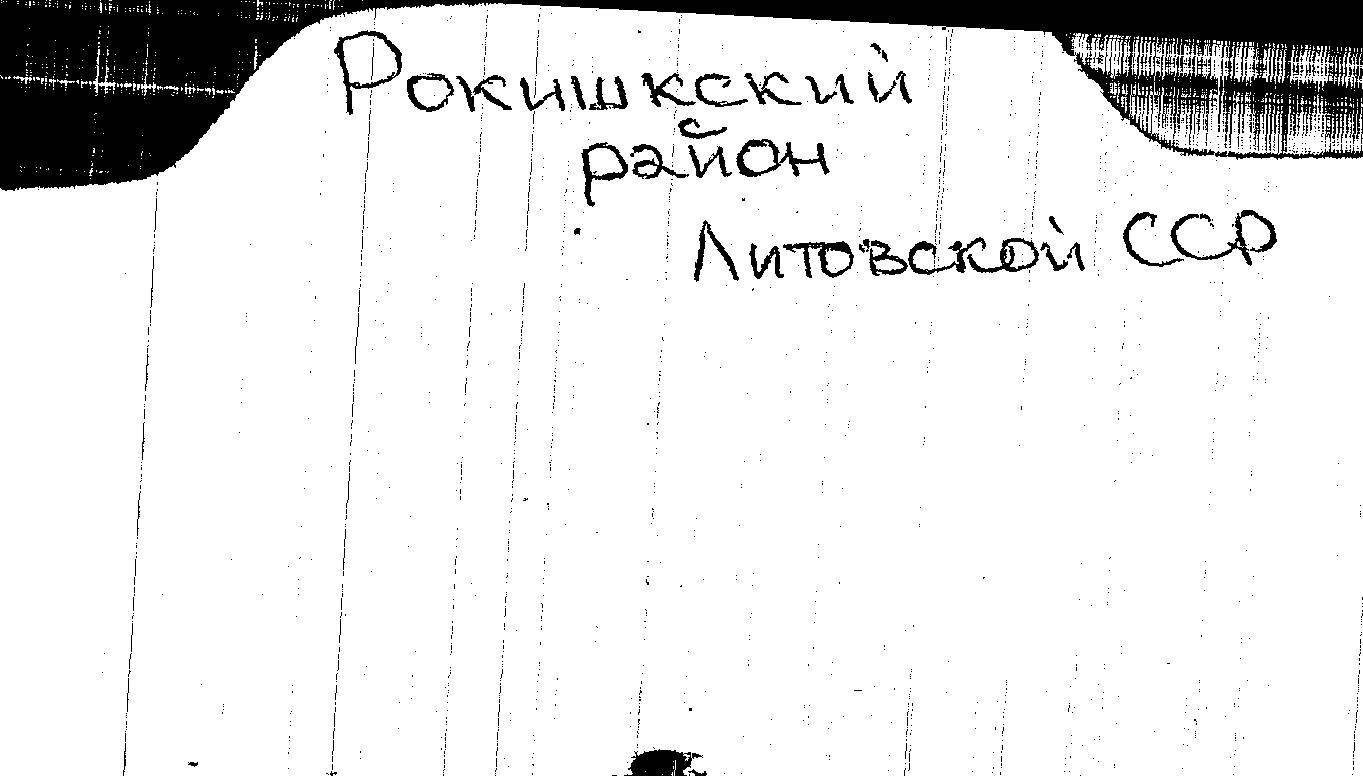 Рокишкский
район
Литовской ССР